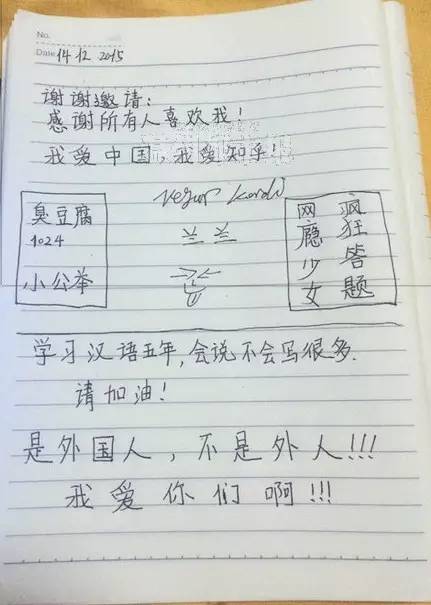 No.
Date 14 12 2015
谢谢邀请:
感谢所有人喜欢我!
我爱中国,我爱知乎!
臭豆腐
1024
小公举
兰 兰
疯狂答题
网瘾少女
学习汉语五年,会说不会写很多.
请加油!
是外国人,不是外人!!!
我爱你们啊!!!